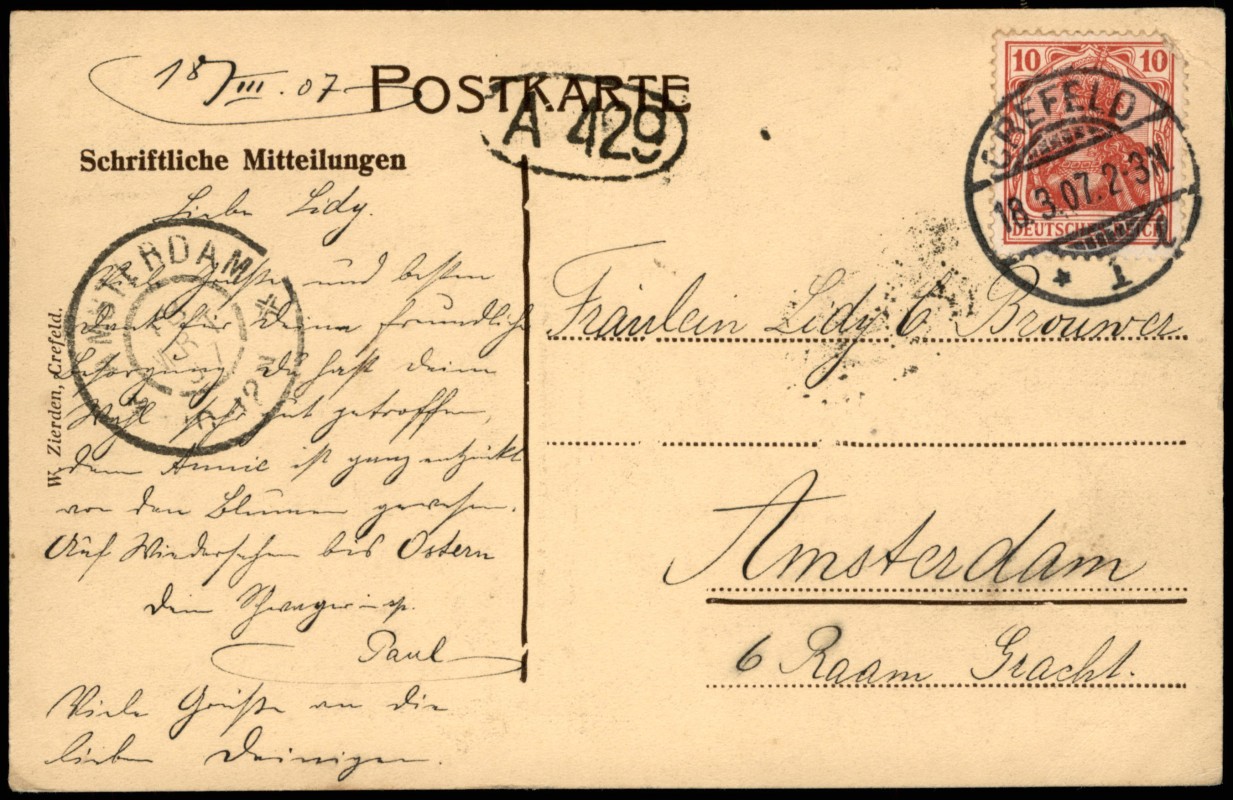 18/III.07
POSTKARTE
A 429
Schriftliche Mitteilungen
10 10
DEUTSCHES REICH
CREFELD
18.3.07.2-3N.
* 1 l
AMSTERDAM
Liebe Lidy.
Grüsse und besten
Dank für Deine freundliche
Besorgung. Du hast deine
Wahl sehr gut getroffen,
denn Annie ist ganz entzückt
von den Blumen gewesen.
Auf Wiedersehen bis Ostern
Dein Schwager i. sp.
Paul
Viele Grüße an die
lieben Deinigen.
W. Zierden, Crefeld.
Fräulein Lidy Brouwer
Amsterdam
6 Raam Gracht.